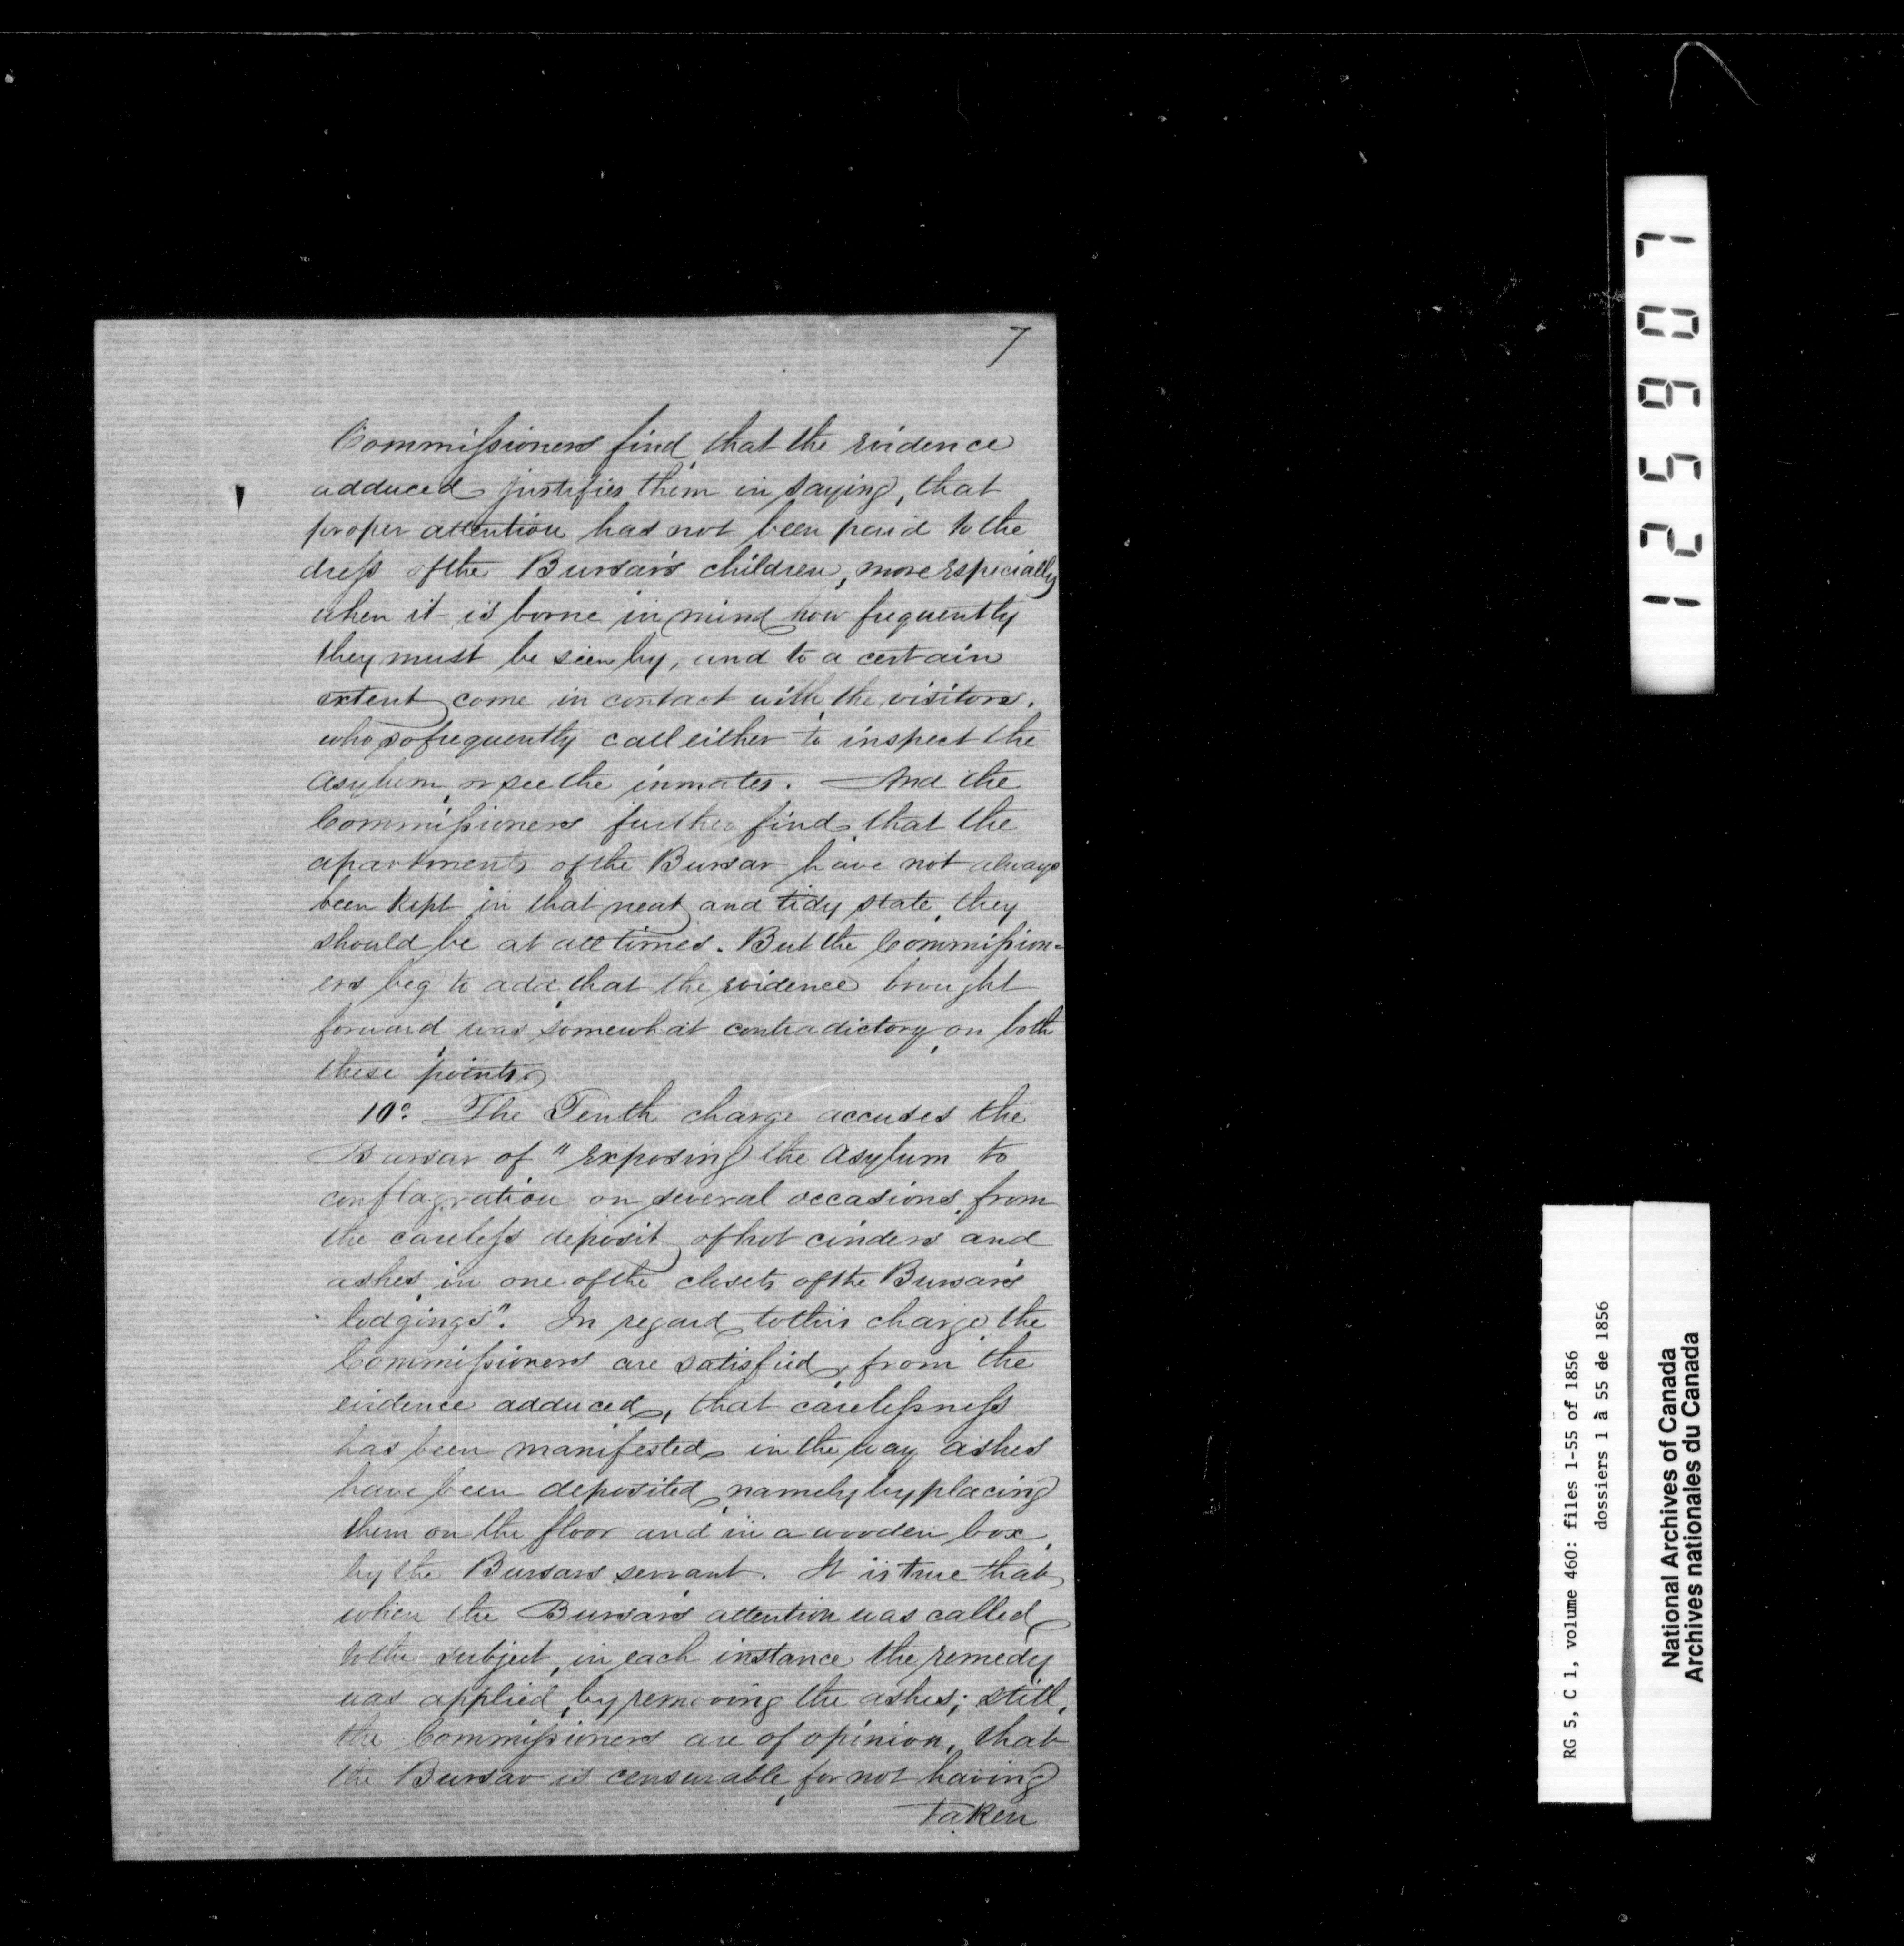 7
Commissioners find, that the evidence
adduced justifies them in saying, that
proper attention has not been paid to the
dress of the Bursar's children, more especially
when it is borne in mind how frequently
they must be seen by, and to a certain
extent come in contact with, the visitors,
who so frequently call either to inspect the
Asylum, or see the inmates. And the
Commissioners further find, that the
apartments of the Bursar have not always
been kept in that neat and tidy state, they
should be at all times. But the Commission-
ers beg to add, that the evidence brought
forward, was somewhat contradictory, on both
these points.
10º. The Tenth charge accuses the
Bursar of "exposing the Asylum to
conflagration on several occasions, from
the careless deposit of hot cinders and
ashes, in one of the closets of the Bursar's
lodgings". In regard to this charge, the
Commissioners are satisfied, from the
evidence adduced, that carelessness
has been manifested in the way ashes
have been deposited, namely by placing
them on the floor and in a wooden box,
by the Bursars servant. It is true that,
when the Bursar's attention was called
to the subject, in each instance, the remedy
was applied, by removing the ashes; still,
the Commissioners are of opinion, that
the Bursar is censurable, for not having
taken
125907
RG 5, C 1, volume 460: files 1-55 of 1856
dossiers 1 à 55 de 1856
National Archives of Canada
Archives nationales du Canada